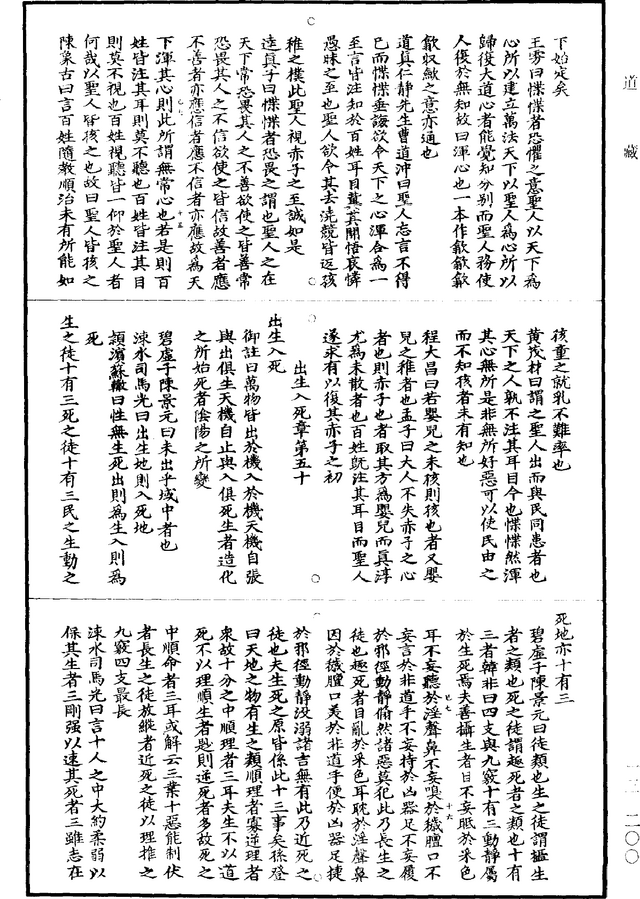 道藏
下始定矣
王雱曰惵惵者恐懼之意聖人以天下為
心所以建立萬法天下以聖人為心所以
歸復大道心者能覺知分別而聖人務使
人復於無知故曰渾心也一本作歙歙歙
歙収斂之意亦通也
道真仁靜先生曹道沖曰聖人忘言不得
已而惵惵垂誨欲令天下之心渾合為一
至言皆注知於百姓耳目冀其開悟哀憐
愚昧之至也聖人欲令其去澆競皆返孩
稚之樸此聖人視赤子之至誠如是
達真子曰惵惵者恐畏之謂也聖人之在
天下常恐畏其人之不善欲使之皆善常
恐畏其人之不信欲使之皆信故善者應
不善者亦應信者應不信者亦應故為天
下渾其心則此所謂無常心也若是則百
姓皆注其耳則莫不聽也百姓皆注其目
則莫不視也百姓視聽皆一仰於聖人者
何哉以聖人皆孩之也故曰聖人皆孩之
陳象古曰言百姓隨教順治未有所能如
孩童之就乳不難率也
黃茂材曰謂之聖人出而與民同患者也
天下之人孰不注其耳目今也惵惵然渾
其心無所是非無所好惡可以使民由之
而不知孩者未有知也
程大昌曰若嬰兒之未孩則孩也者又嬰
兒之稚者也孟子曰大人不失赤子之心
者也則赤子也者取其方為嬰兒而真淳
尤為未散者也百姓既注其耳目而聖人
遂求有以復其赤子之初
出生入死章第五十
出生入死
御註曰萬物皆出於機入於機天機自張
與出俱生天機自止與入俱死生者造化
之所始死者陰陽之所變
碧虛子陳景元曰未出乎域中者也
涑水司馬光曰出生地則入死地
頴濱蘇轍曰性無生死出則為生入則為
死
生之徒十有三死之徒十有三民之生動之
死地亦十有三
碧虛子陳景元曰徒類也生之徒謂攝生
者之類也死之徒謂趣死者之類也十有
三者韓非曰四支與九竅十有三動靜屬
於生死焉夫善攝生者目不妄眡於采色
耳不妄聽於淫聲鼻不妄嗅於穢膻口不
妄言於非道手不妄持於凶器足不妄履
於邪徑動靜翛然諸惡莫犯此乃長生之
徒也趣死者目亂於采色耳耽於淫聲鼻
因於穢膻口美於非道手便於凶器足捷
於邪徑動靜沒溺諸吉無有此乃近死之
徒也夫生死之原皆係此十三事矣孫登
曰天地之物有生之類順理者寡逆理者
衆故十分之中順理者三耳夫生不以道
死不以理順生者尠則逆死者多故死之
中順命者三耳或解云三業十惡能制伏
者長生之徒放縱者近死之徒以理推之
九竅四支最長
涑水司馬光曰言十人之中大約柔弱以
保其生者三剛强以速其死者三雖志在
一三 二〇〇